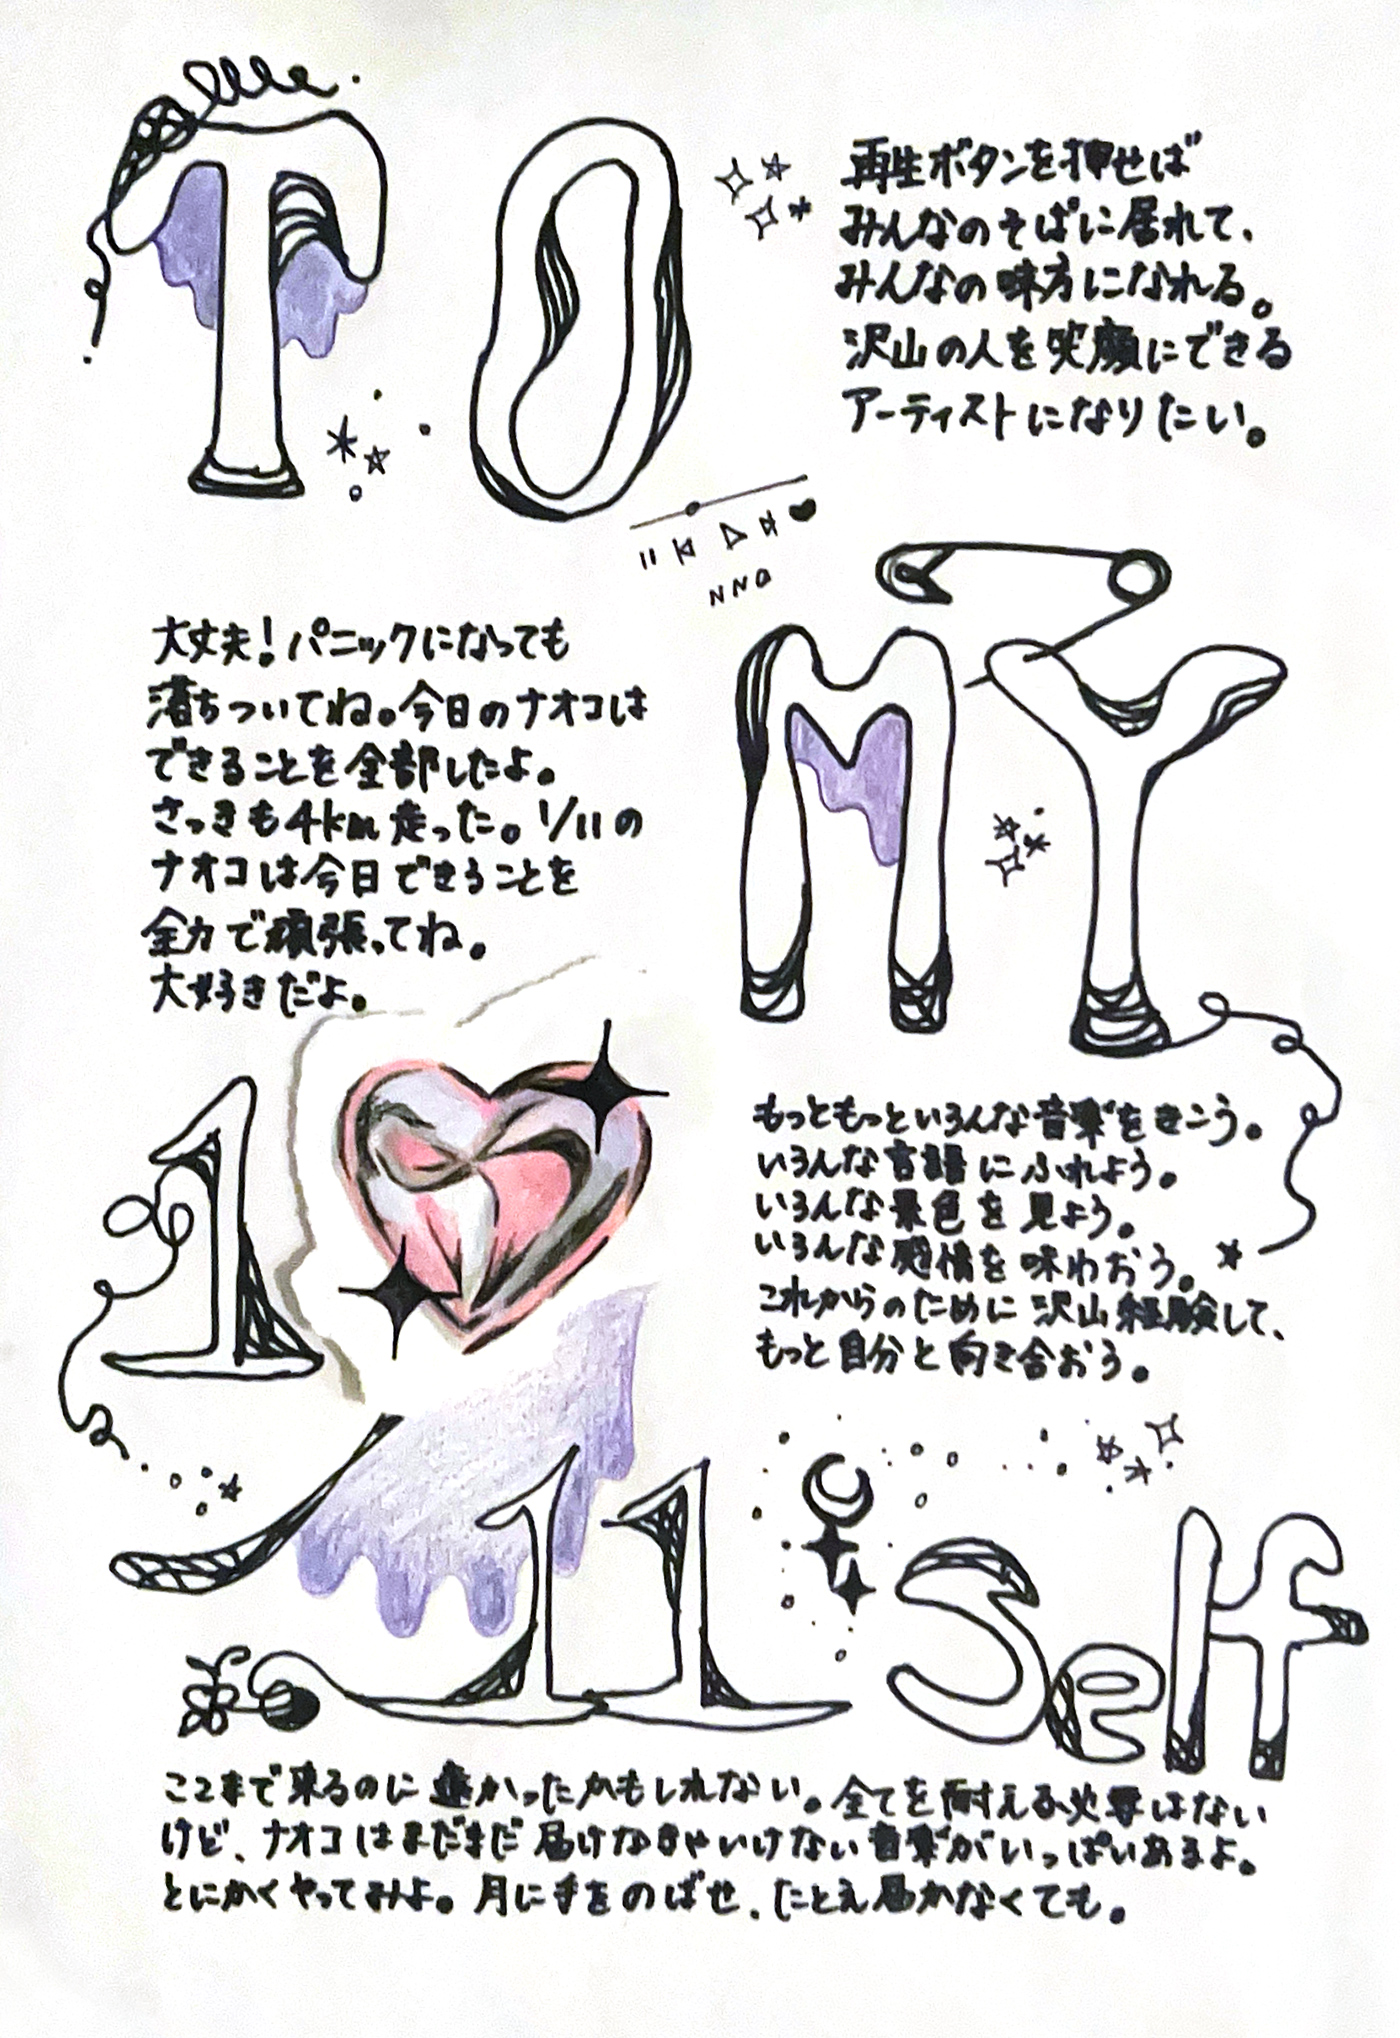 TO
再生ボタンを押せば
みんなのそばに居れて、
みんなの味方になれる。
沢山の人を笑顔にできる
アーティストになりたい。
NNO
MY
大丈夫！パニックになっても
落ちついてね。今日のナオコは
できることを全部したよ。
さっきも4km走った。1/11の
ナオコは今日できることを
全力で頑張ってね。
大好きだよ。
1
もっともっといろんな音楽をきこう。
いろんな言語にふれよう。
いろんな景色を見よう。
いろんな感情を味わおう。
これからのために沢山経験して、
もっと自分と向き合おう。
11
Self
ここまで来るのに遠かったかもしれない。全てを耐える必要はない
けど、ナオコはまだまだ届けなきゃいけない音楽がいっぱいあるよ。
とにかくやってみよ。月に手をのばせ、たとえ届かなくても。